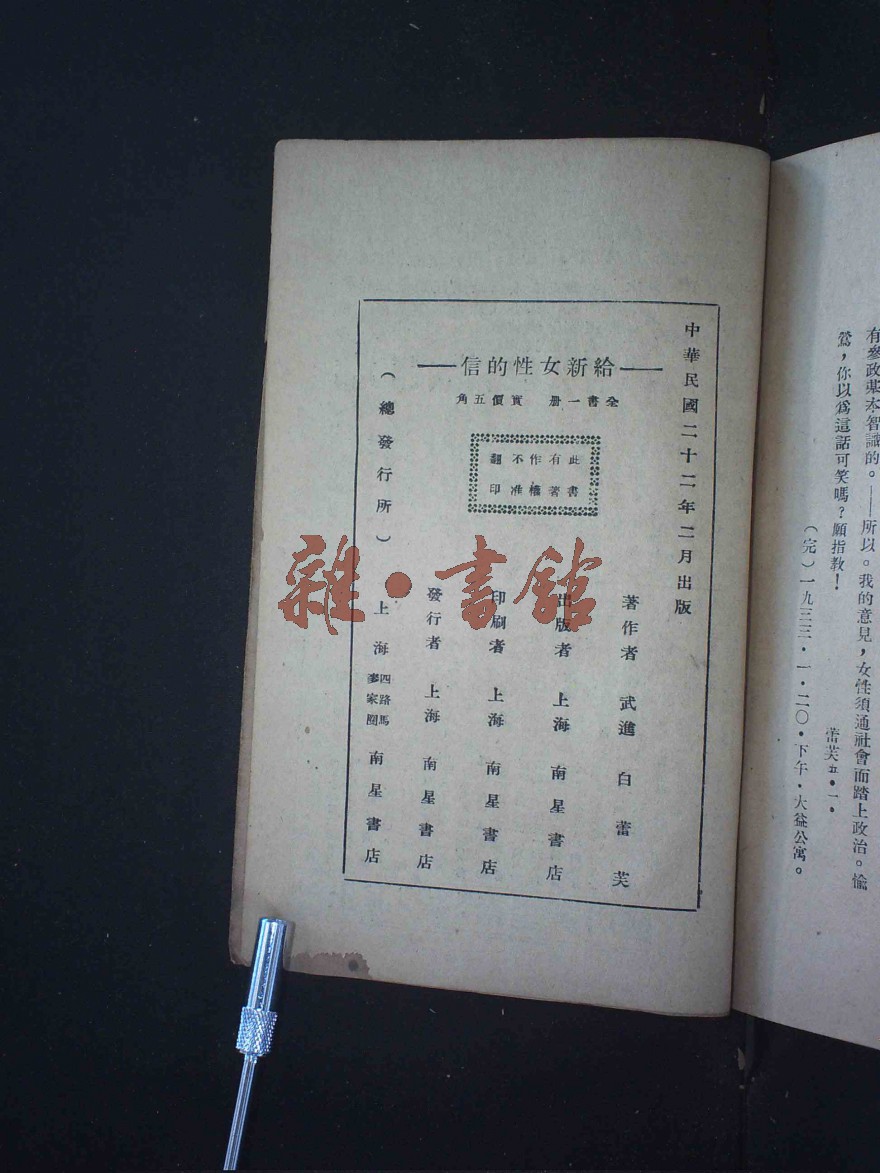 有參政基本智識的。——所以。我的意見，女性須通社會而踏上政治。愉
鶯，你以爲這話可笑嗎？願指教！
蕾芙五·一·
（完）一九三三·一·二〇·下午·大益公寓。
中華民國二十二年二月出版
——給新女性的信——
全書一册 實價五角
此書
有著
作權
不准
翻印
著作者 武進 白蕾芙
出版者 上海 南星書店
印刷者 上海 南星書店
發行者 上海 南星書店
（總發行所） 上海 四馬路麥家圈 南星書店
雜·書館